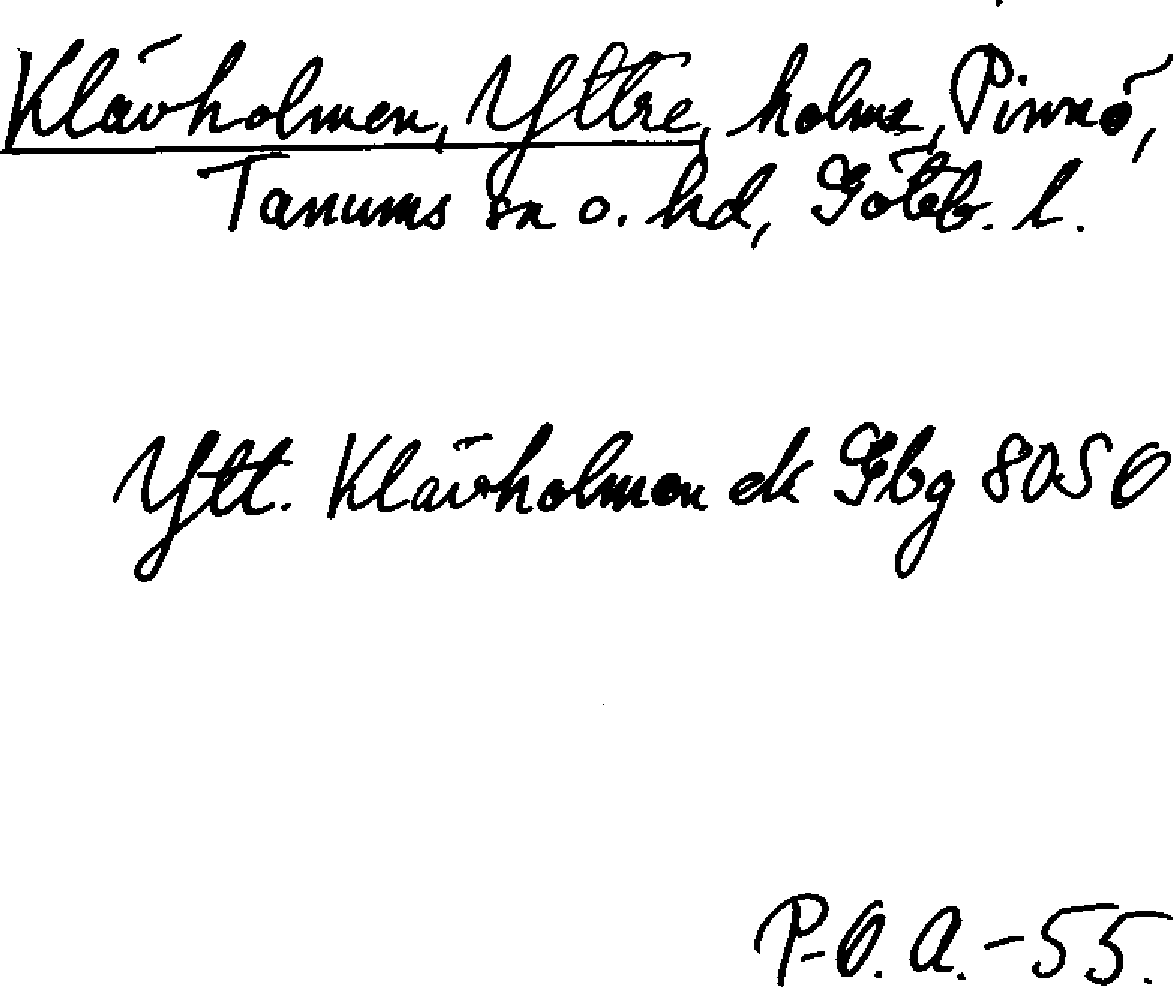 Klävholmen, Yttre, holme, Pinnö,
Tanums sn o. hd, Göteb. l.
Ytt. Klävholmen ek Gbg 8050
P-O. A. -55.